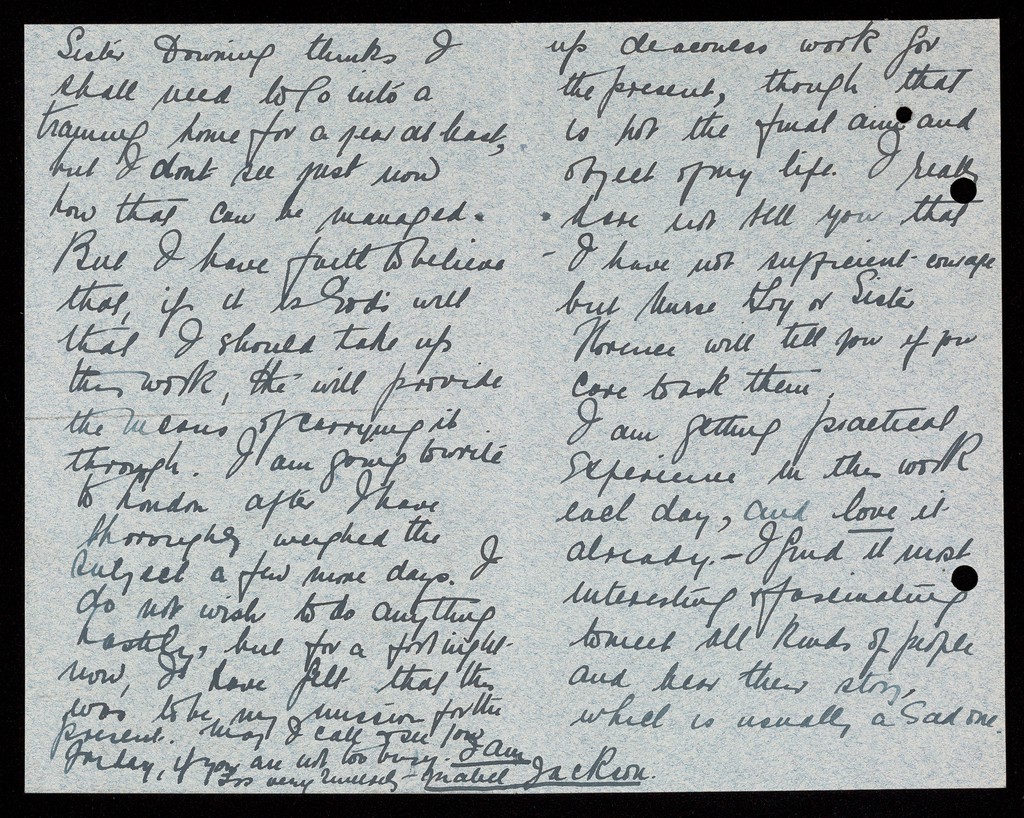 Sister Downing thinks I
shall need to go into a
training home for a year at least,
but I dont see just now
how that can be managed.
But I have faith to believe
that, if it is God's will
that I should take up
this work, He will provide
the means of carrying it
through. I am going to write
to London after I have
thoroughly weighed the
subject a few more days. I
do not wish to do anything
hastily, but for a fortnight
now, I have felt that this
was to be my mission for the
present. May I call & see you
Friday, if you are not too busy. I am
Yrs very sincerely Mabel Jackson.
up deaconess work for
the present, though that
is not the final aim and
object of my life. I really
dare not tell you that
- I have not sufficient courage
but Nurse Loy or Sister
Florence will tell you if you
care to ask them.
I am getting practical
experience in this work
each day, and love it
already. - I find it most
interesting & fascinating
to meet all kinds of people
and hear their story,
which is usually a sad one.